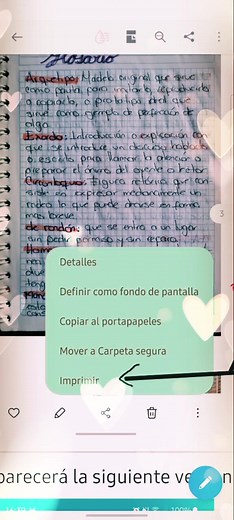 Glosario
Arquetipo: Modelo original que sirve
como pauta para imitarlo, reproducirlo
o copiarlo, o prototipo ideal que
sirve como ejemplo de perfección de
algo.
Exordio: Introducción o explicación con
que se introduce un discurso hablado
o escrito para llamar la atención o
preparar el ánimo del oyente o lector
Figura retórica que con
siste en expresar mediante un
rodeo lo que puede decirse en forma
más breve.
de rondón: que se entra a un lugar
sin pedir permiso y sin reparo
3
Detalles
Definir como fondo de pantalla
Copiar al portapapeles
Mover a Carpeta segura
Imprimir
parecerá la siguiente ven
100%